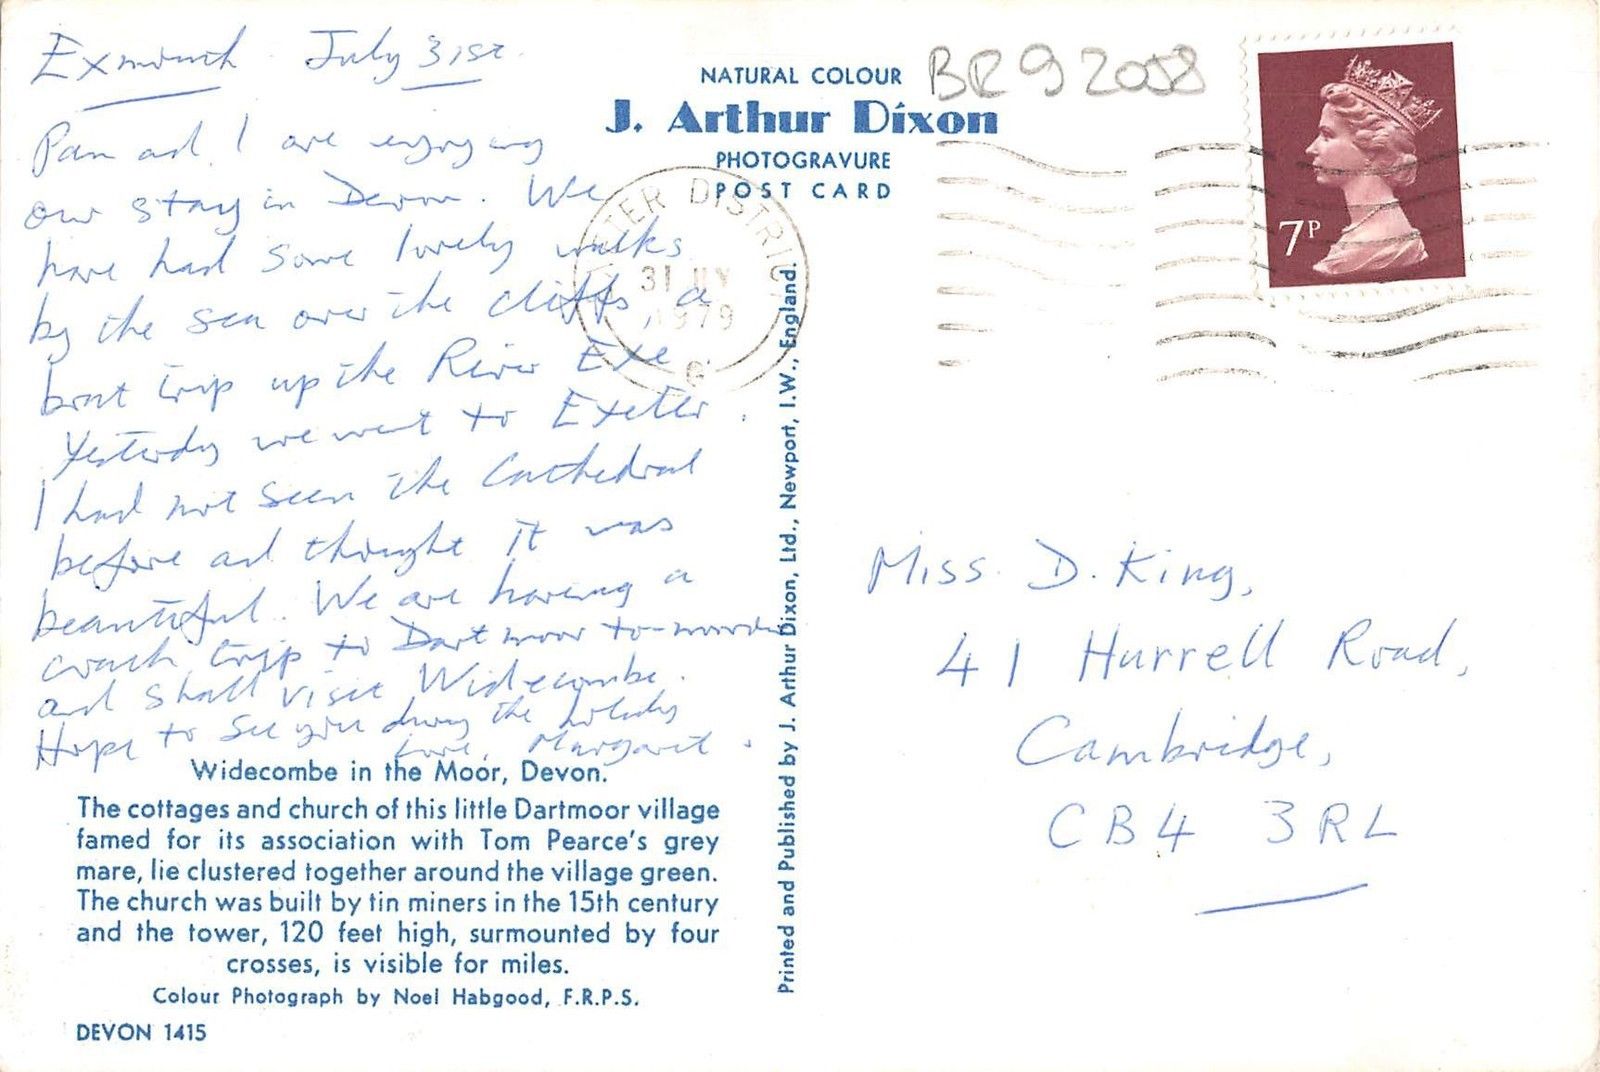 Exmouth July 31st.
Pam and I are enjoying
our stay in Devon. We
have had some lovely walks
by the sea over the cliffs, a
boat trip up the River Exe
Yesterday we went to Exeter.
I had not seen the Cathedral
before and thought it was
beautiful. We are having a
coach trip to Dartmoor to-morrow
and shall visit Widecombe.
Hope to see you during the holiday
Love, Margaret.
Widecombe in the Moor, Devon.
The cottages and church of this little Dartmoor village
famed for its association with Tom Pearce's grey
mare, lie clustered together around the village green.
The church was built by tin miners in the 15th century
and the tower, 120 feet high, surmounted by four
crosses, is visible for miles.
Colour Photograph by Noel Habgood, F.R.P.S.
DEVON 1415
NATURAL COLOUR
J. Arthur Dixon
PHOTOGRAVURE
POST CARD
Printed and Published by J. Arthur Dixon, Ltd., Newport, I.W., England.
BR92058
EXETER DISTRICT
31 JLY
1979
7P
Miss. D. King,
41 Hurrell Road,
Cambridge,
CB4 3RL